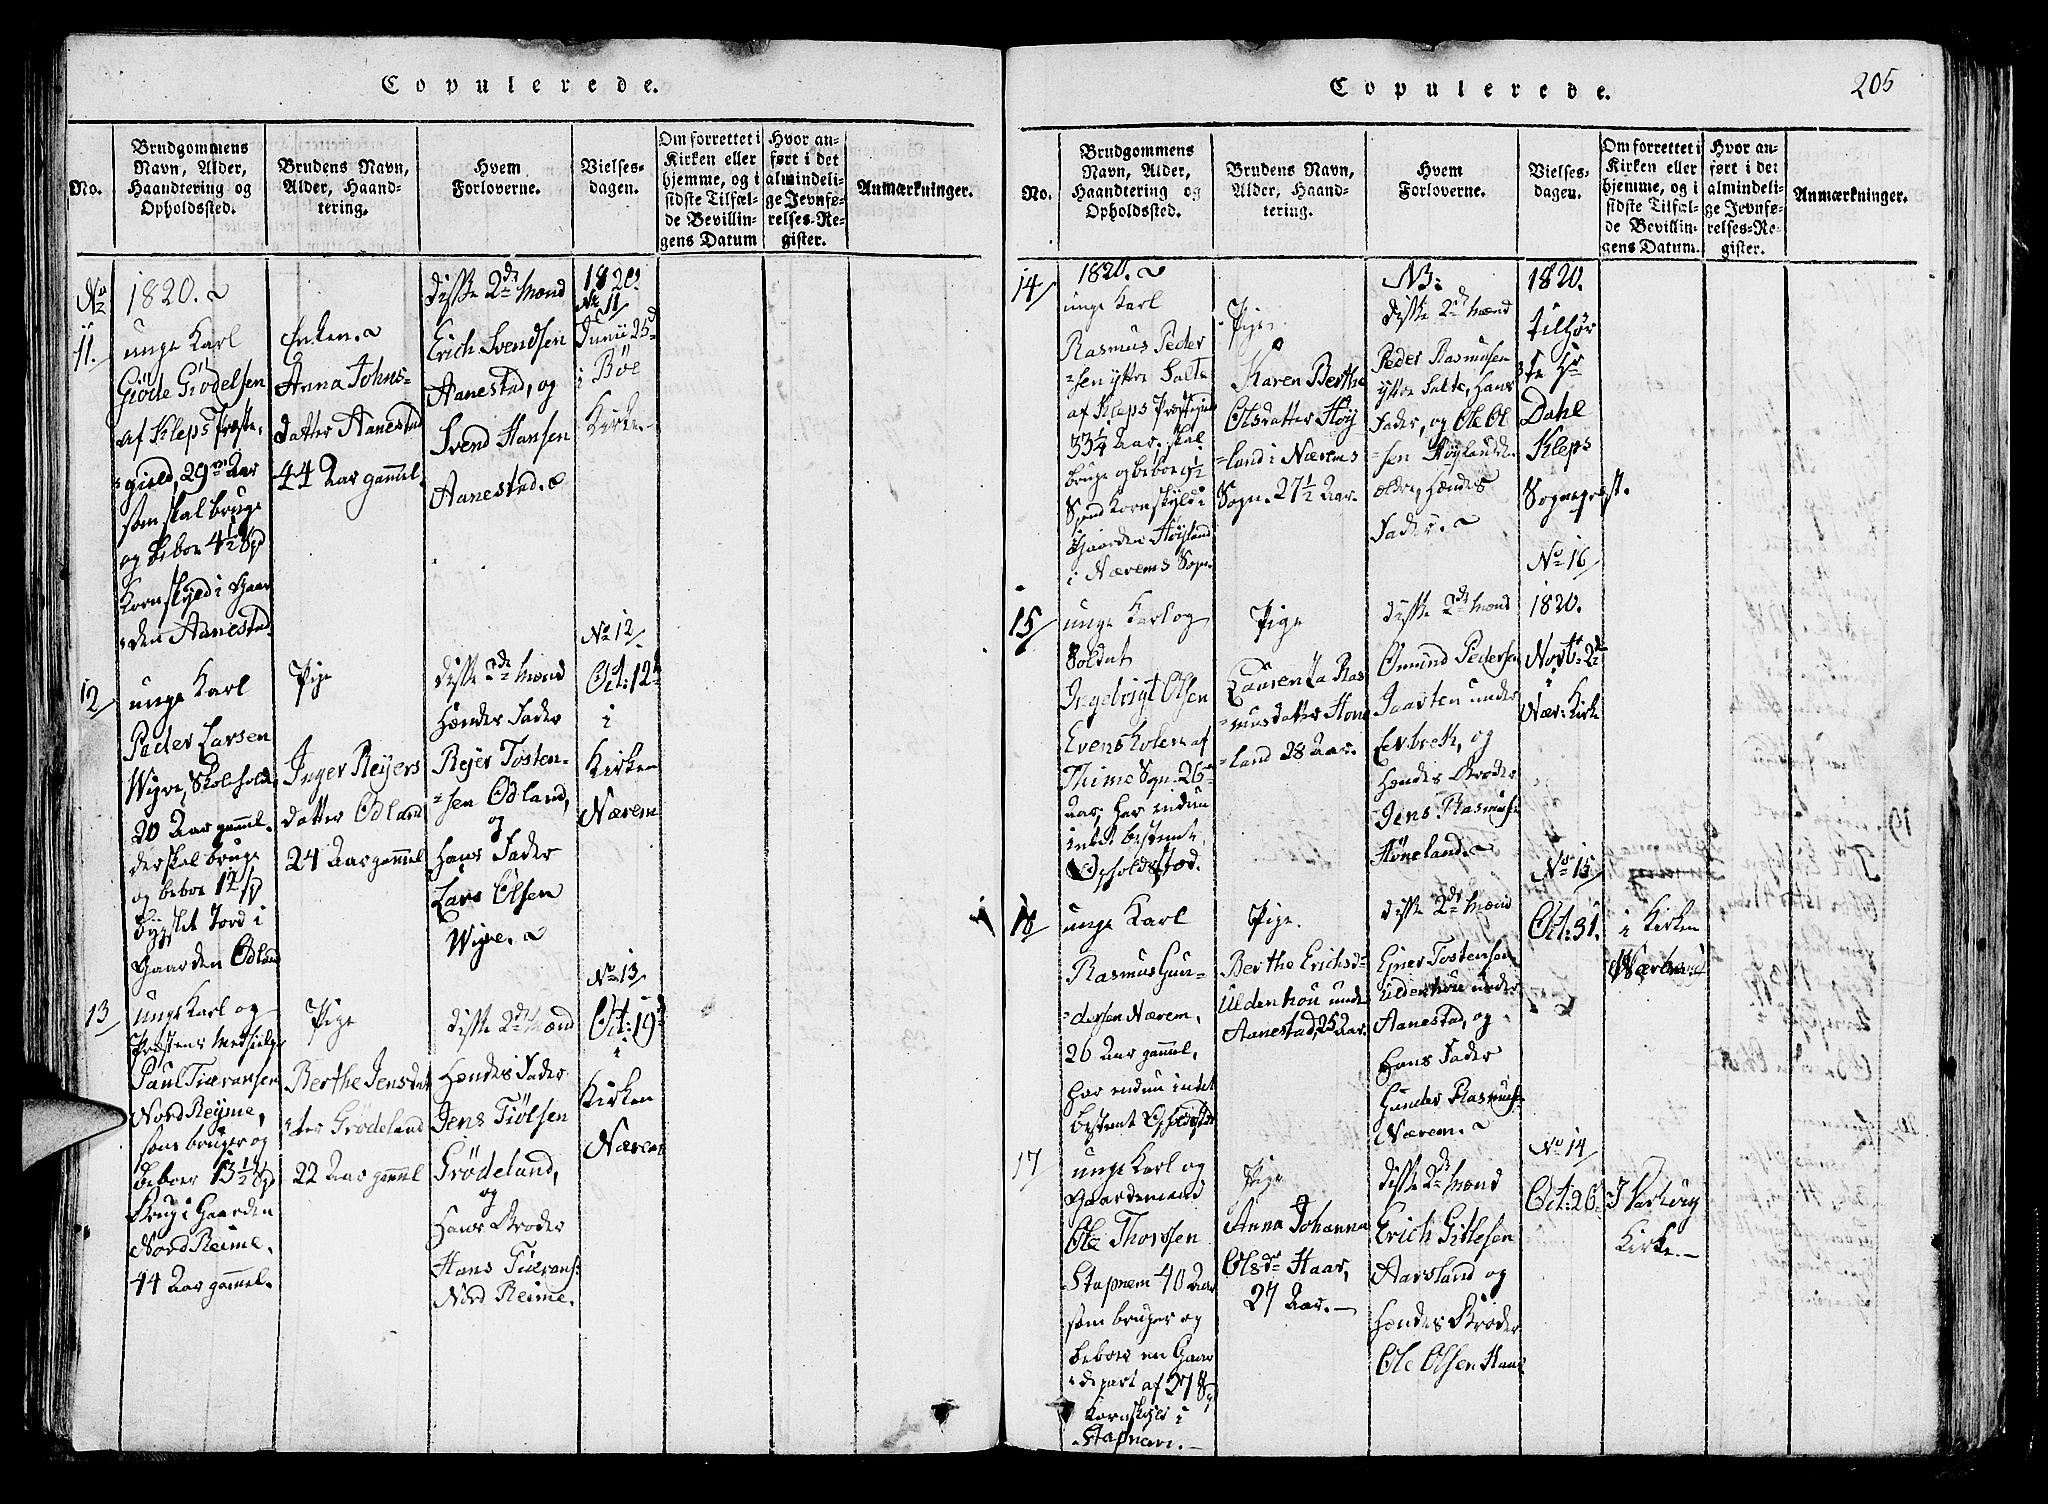 Copulerede.
No.
Brudgommens
Navn, Alder,
Haandtering og
Opholdssted.
Brudens Navn,
Alder, Haand-
tering.
Hvem
Forloverne.
Vielses-
dagen.
Om forrettet i
Kirken eller
hjemme, og i
sidste Tilfæl-
de Bevillin-
gens Datum
Hvor an-
ført i det
almindeli-
ge Jevnfø-
relses-Re-
gister.
Anmærkninger.
No
11.
1820.
unge Karl
Giöde Giödelsen
af Kleps Præste-
gield, 29 Aar
som skal bruge
og beboe 4½ Spd
Kornskyld i Gaar
den Aanestad.
Enken.
Anna Johns-
datter Aanestad
44 Aar gammel.
disse 2de Mænd
Erich Svendsen
Aanestad, og
Svend Hansen
Aanestad.
1820
No 11
Junii 25
i Böe
Kirke.
12
unge Karl
Peder Larsen
Wigre, Skolholder
20 Aar gammel.
der skal bruge
og beboe 12 Sp
bygslet Jord i
Gaarden Odland
Pige
Inger Reyers
datter Odland
24 Aar gammel
disse 2de Mænd
Hendes Fader
Rejer Tosten-
sen Odland,
og
Hans Fader
Lars Olsen
Wigre.
No 12
Oct: 12
i
Kirken
Nærem
13
unge Karl og
Præstens Medhielper
Paul Tiæransen
Nord Reyme,
som bruger og
beboer 13½ Spd
Brug i Gaarden
Nord Reime.
44 Aar gammel.
Pige
Berthe Jensdat
ter Grödeland
22 Aar gammel
disse 2de Mænd
Hendes Fader
Jens Tiölsen
Grödeland,
og
Hans Broder
Hans Tiærans:
Nord Reime.
No 13
Oct: 19
i
Kirken
Nærem
Copulerede.
205
No.
Brudgommens
Navn, Alder,
Haandtering og
Opholdssted.
Brudens Navn,
Alder, Haand-
tering.
Hvem
Forloverne.
Vielses-
dagen.
Om forrettet i
Kirken eller
hjemme, og i
sidste Tilfæl-
de Bevillin-
gens Datum.
Hvor an-
ført i det
almindeli-
ge Jevnfø-
relses-Re-
gister.
Anmærkninger.
14
1820.
unge Karl
Rasmus Peder
sen yttre Salte
af Kleps Præstegield
33¼ Aar. skal
bruge og beboe 9½
Spd Kornskyld i
Gaarden Höyland
i Nærems Sogn
Pige.
Karen Berthe
Olsdatter Höy
land i Nærems
Sogn. 27½ Aar.
NB:
disse 2de Mænd
Peder Rasmusen
yttre Salte, Hans
Fader, og Ole Ol
sen Höyland
ældre, Hendes
Fader.
1820.
tilhör
te Hr
Dahl
Kleps
Sognepræst.
15
unge Karl og
Soldat
Ingebrigt Olsen
Evenskolen af
Thime Sogn. 26
Aar, har endnu
intet bestemt
Opholdsted.
Pige
Laurentza Ras
musdatter Höne
land 28 Aar.
disse 2de Mænd
Omund Pedersen
Jaarten under
Evebreth, og
Hendes Broder
Jens Rasmus:
Höneland.
No 16
1820.
Novb: 2
i
Nær: Kirke
16
unge Karl
Rasmus Gun-
dersen Nærem,
26 Aar gammel,
har endnu intet
bestemt Opholdsted
Pige.
Berthe Erichsdr
Uldenhou under
Aanestad, 25 Aar.
disse 2de Mænd
Ejner Tostensen
Uldenhou under
Aanestad, og
Hans Fader
Gunder Rasmus:
Nærem.
No 15
Oct: 31.
i Kirken
Nærem
17
unge Karl og
Gaardemand
Ole Thorsen
Stapnem 40 Aar
som bruger og
beboer en Gaar
depart af 27 Sp
Kornskyld i
Stapnem.
Pige
Anna Johanna
Olsdr Haar,
27 Aar.
disse 2de Mænd
Erich Gitlesen
Aarsland og
Hendes Broder
Ole Olsen Haar
No 14
Oct: 26
I Varhoug
Kirke.